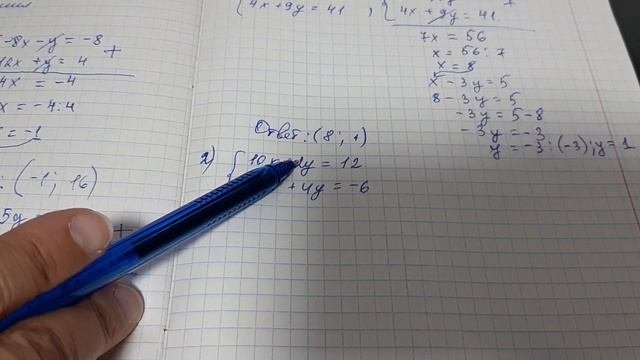 -8x - y = -8
12x + y = 4
+
4x = -4
x = -4 : 4
x = -1
: (-1; 16)
5y =
+
4x + 9y = 41
,
4x + 9y = 41
+
7x = 56
x = 56 : 7
x = 8
x - 3y = 5
8 - 3y = 5
-3y = 5 - 8
-3y = -3
y = -3 : (-3); y = 1
Ответ: (8; 1)
2) { 10x 2y = 12
+ 4y = -6